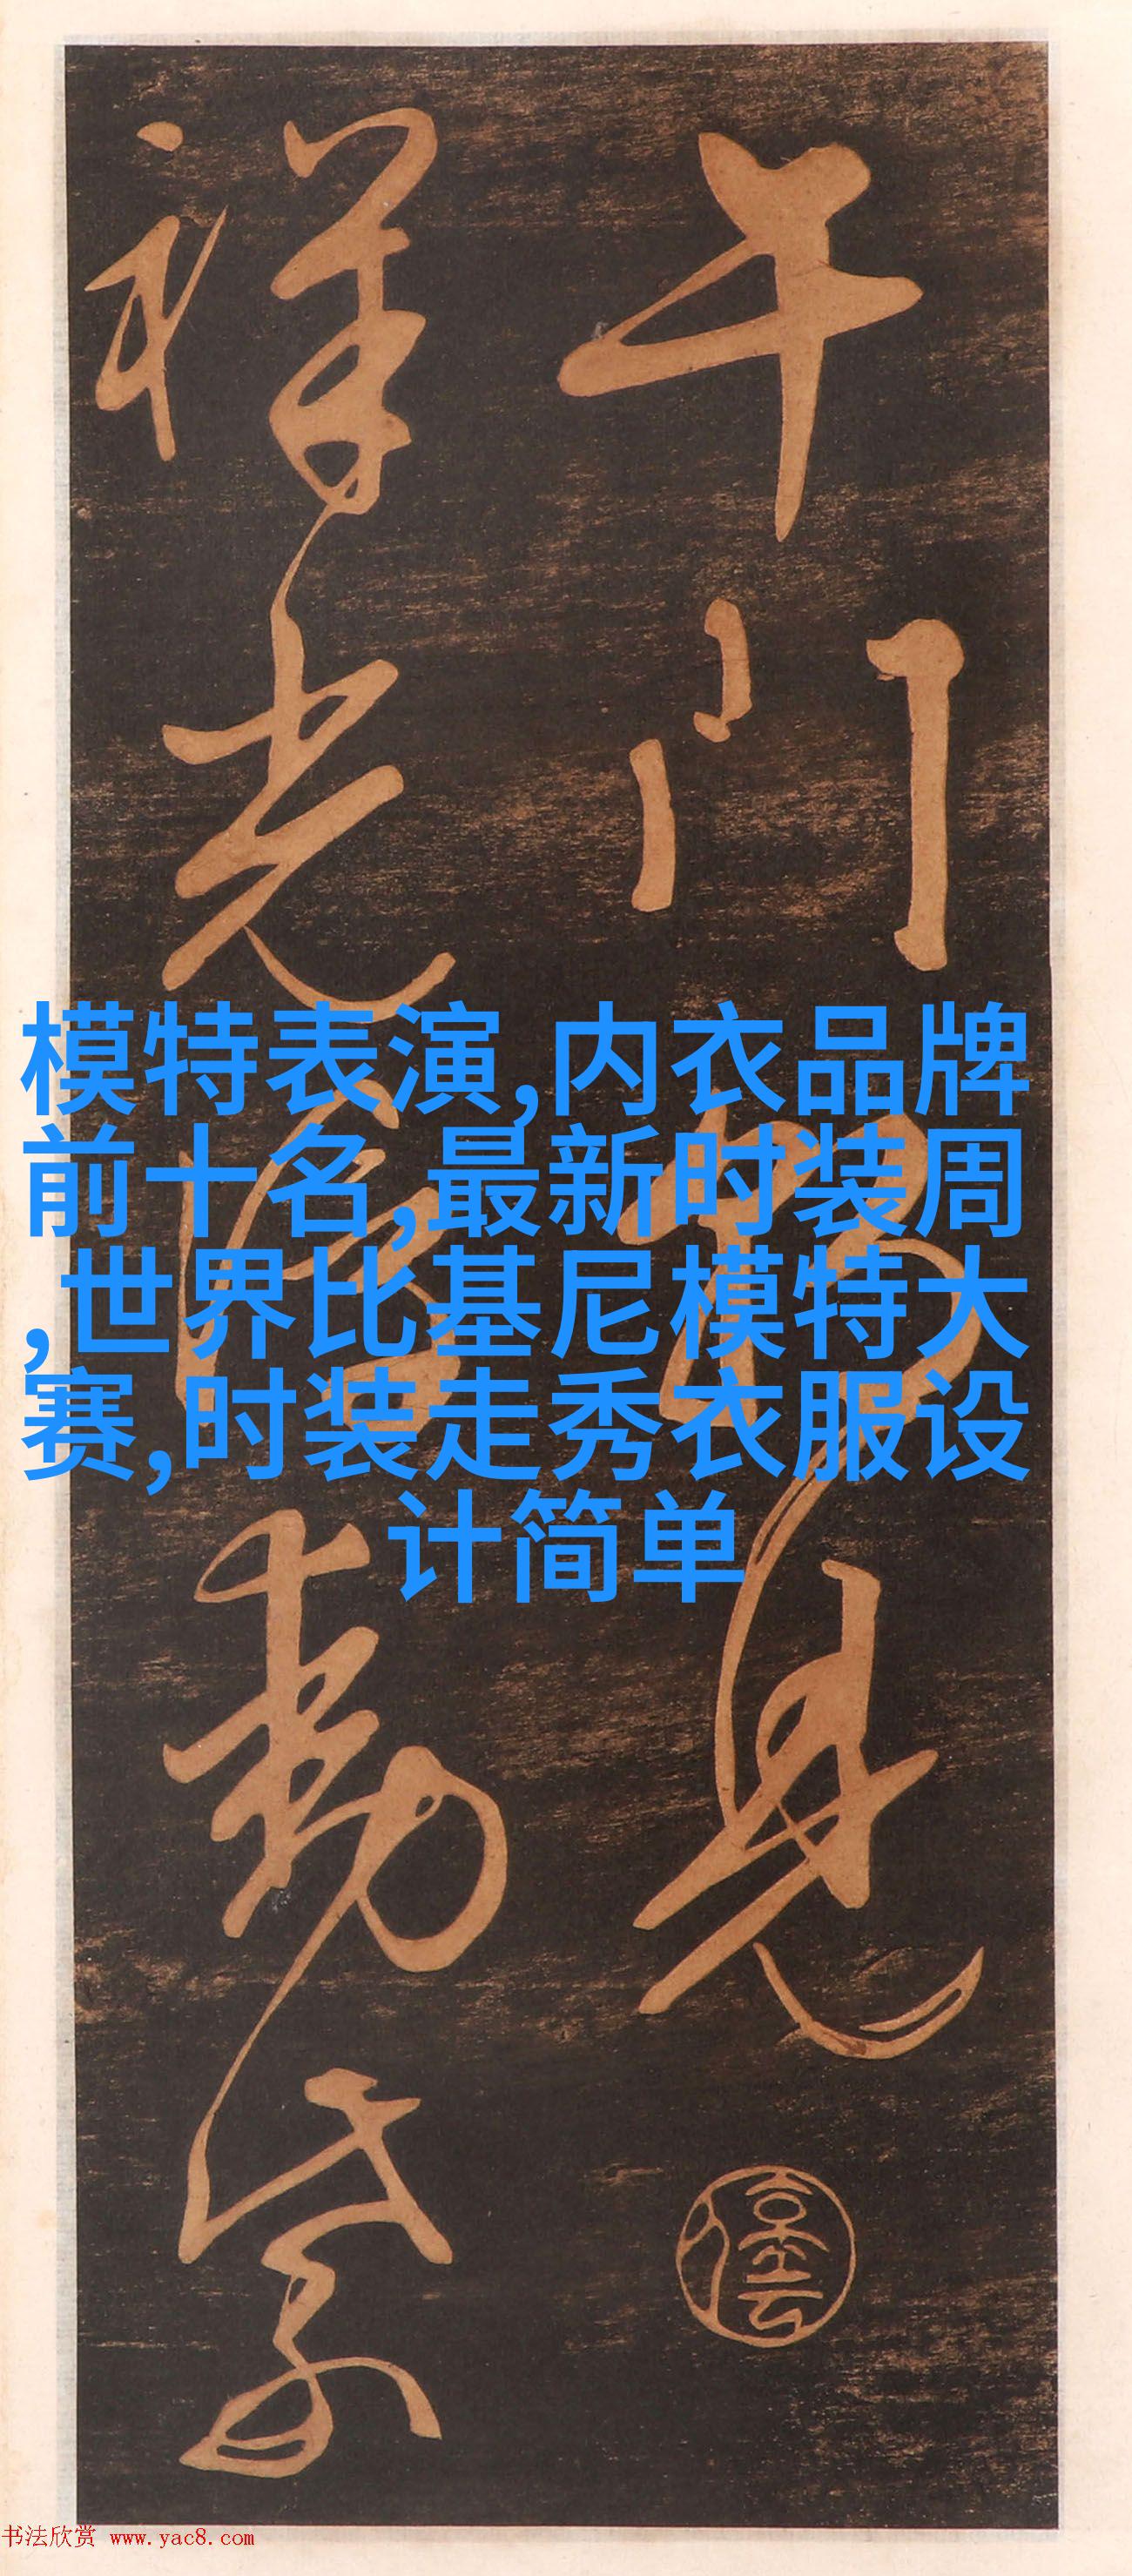 午门
见
祥光
动紫
模特表演,内衣品牌
前十名,最新时装周
,世界比基尼模特大
赛,时装走秀衣服设
计简单
书法欣赏 www.yac8.com